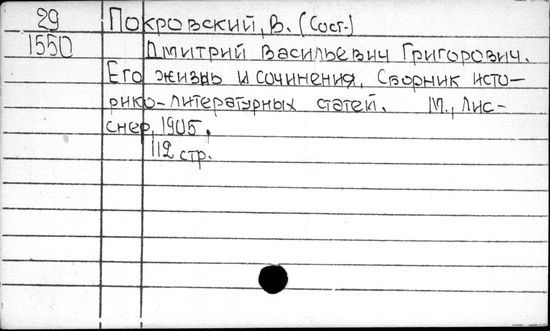 29 Покровский, В. (Сост.)
1550 Дмитрий Васильевич Григорович.
Его жизнь и сочинения. Сборник исто-
рико-литературных статей. М., Лис-
снер, 1905.
112 стр.